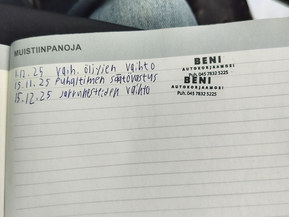 MUISTIINPANOJA
BENI
AUTOKORJAAMOSI
Puh. 045 7832 5225
BENI
AUTOKORJAAMOSI
Puh. 045 7832 5225
12.25 vaih. öljyjen vaihto
15.11.25 Puhaltimen säätövastus
15.12.25 Jarrunesteiden vaihto